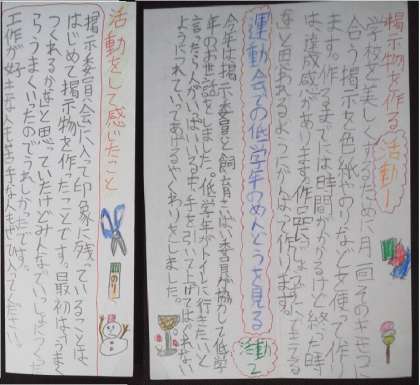 掲示物を作る 活動1
学校を美しくするために月一回そのきせつに
合う掲示を色紙やのりなどを使って作り
ます。作るまでには時間がかかるけど終った時
は達成感があります。作品
と思あれるようにがんばって作ります。
運動会での低学年のめんどうを見る 活動2
今年は掲示委員と飼育さいばい委員が協力して低学
年のお世話をしました。低学年がトイレに行きたいと
言ったら人がいっぱいいるため手を引いて上げてはぐれない
ようにつれていってあげるやくわりをしました。
活動をして感じたこと
掲示委員会に入って印象に残っていることは
はじめて掲示物を作ったことです。最初はうまく
つくれるかなと思っていたけどみんなでいっしょにつくった
らうまくいったのでうれしかったです。
工作が好きな人も苦手な人もぜひ入ってください。
のり